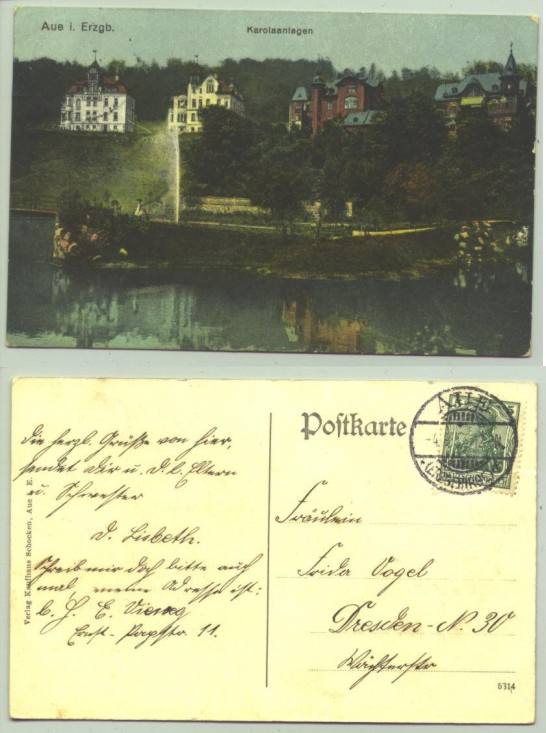 Aue i. Erzgb.
Karolaanlagen
Postkarte
AUE
(ERZGEBIRGE)
die herzl. Grüße von hier,
sendet Dir u. d. l. Eltern
u. Schwester
D. Lisbeth.
Schreib mir doch bitte auch
mal, meine Adresse ist:
b. H. E. Vieweg
Ernst-Papststr. 11.
Fräulein
Frida Vogel
Dresden-N. 30
Wächterstr
Verlag Kaufhaus Schocken, Aue i. E.
5314